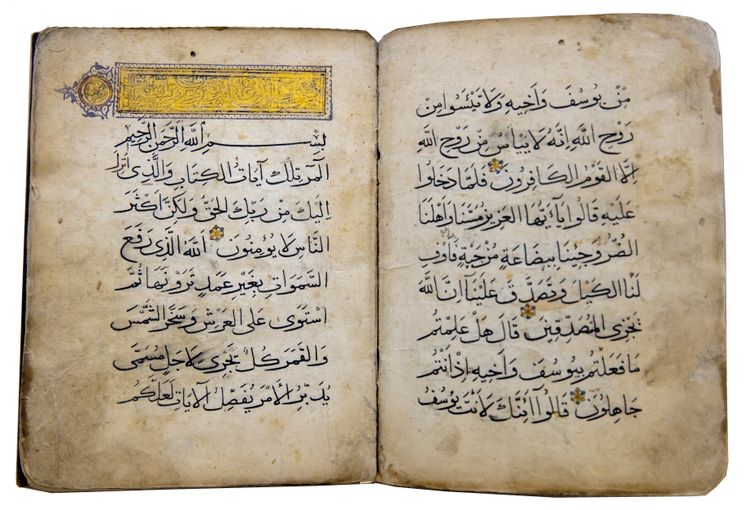 مِنْ يُوسُفَ وَأَخِيهِ وَلَا تَيْئَسُوا مِن
رَوْحِ اللهِ إِنَّهُ لَا يَيْأَسُ مِنْ رَوْحِ اللهِ
إِلَّا الْقَوْمُ الْكَافِرُونَ فَلَمَّا دَخَلُوا
عَلَيْهِ قَالُوا يَا أَيُّهَا الْعَزِيزُ مَسَّنَا وَأَهْلَنَا
الضُّرُّ وَجِئْنَا بِبِضَاعَةٍ مُزْجَيةٍ فَأَوْفِ
لَنَا الْكَيْلَ وَتَصَدَّقْ عَلَيْنَا إِنَّ اللهَ
يَجْزِي الْمُتَصَدِّقِينَ قَالَ هَلْ عَلِمْتُم
مَا فَعَلْتُم بِيُوسُفَ وَأَخِيهِ إِذْ أَنْتُم
جَاهِلُونَ قَالُوا أَئِنَّكَ لَأَنْتَ يُوسُفُ
بِسْمِ اللهِ الرَّحْمَنِ الرَّحِيمِ
الٓمٓرٰ تِلْكَ آيَاتُ الْكِتَابِ وَالَّذِي أُنْزِلَ
إِلَيْكَ مِنْ رَبِّكَ الْحَقُّ وَلَكِنَّ أَكْثَرَ
النَّاسِ لَا يُؤْمِنُونَ اللهُ الَّذِي رَفَعَ
السَّمَوَاتِ بِغَيْرِ عَمَدٍ تَرَوْنَهَا ثُمَّ
اسْتَوَى عَلَى الْعَرْشِ وَسَخَّرَ الشَّمْسَ
وَالْقَمَرَ كُلٌّ يَجْرِي لِأَجَلٍ مُسَمًّى
يُدَبِّرُ الْأَمْرَ يُفَصِّلُ الْآيَاتِ لَعَلَّكُم